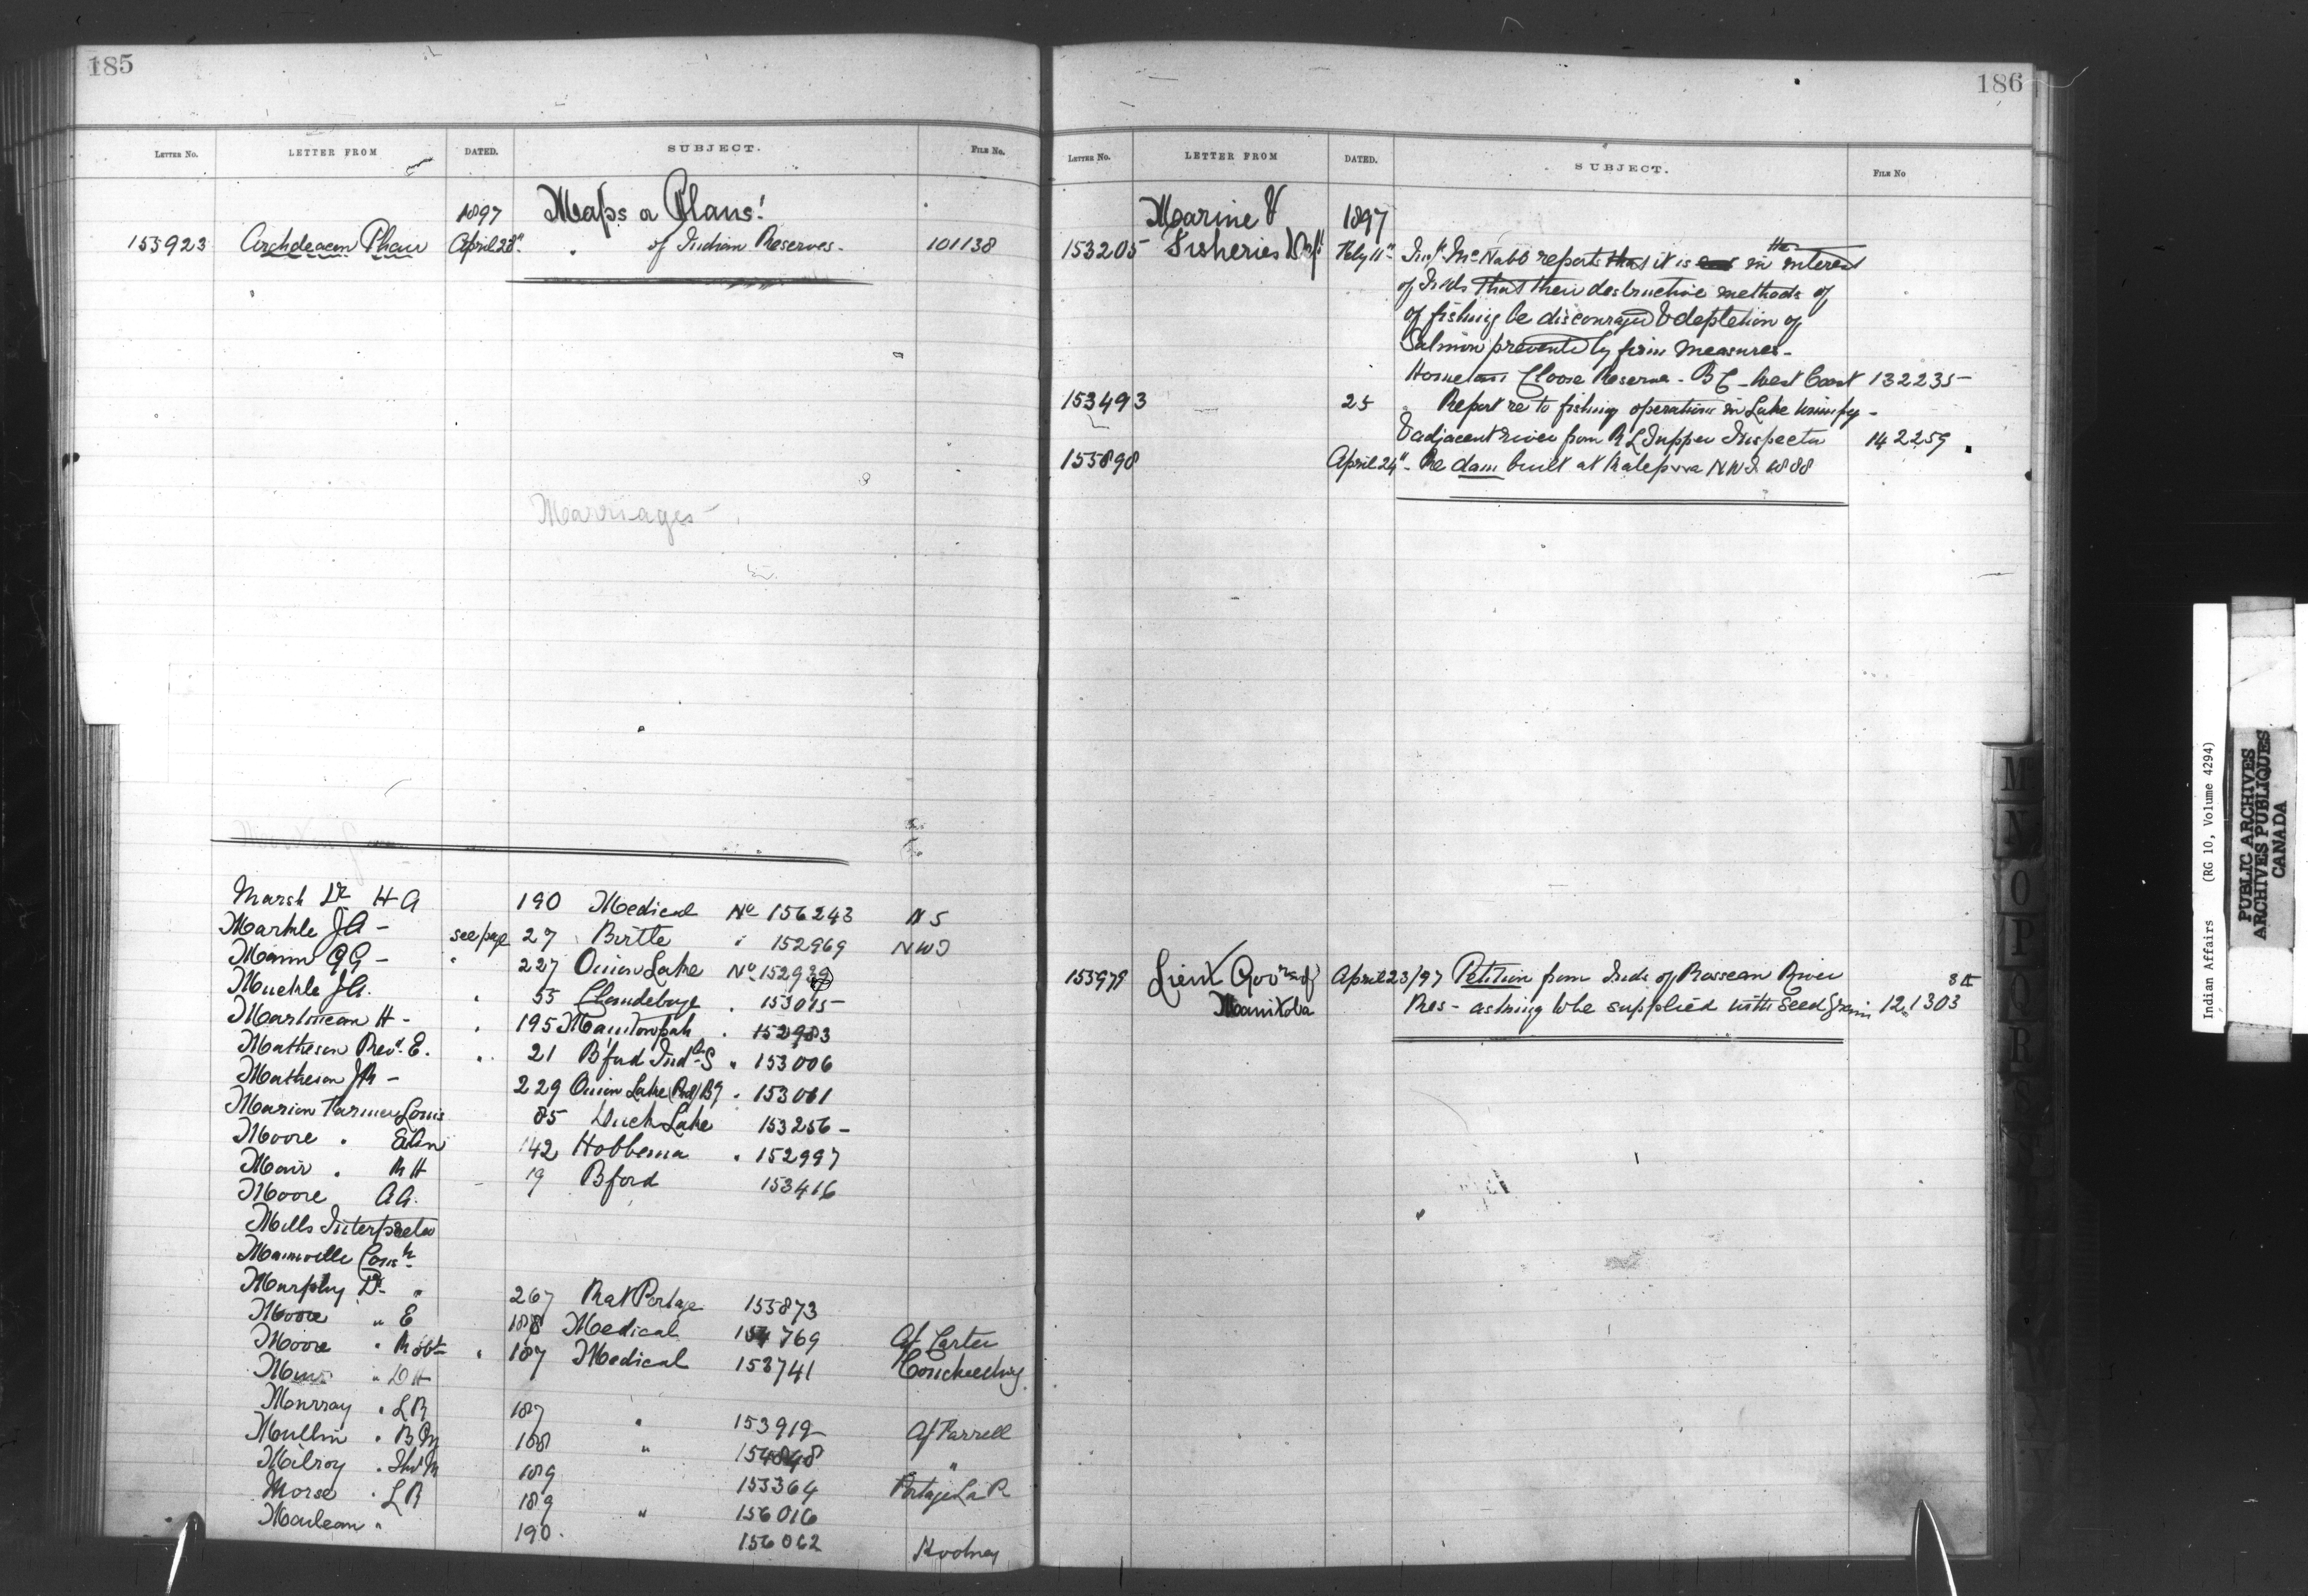 185
LETTER NO. LETTER FROM DATED. SUBJECT. FILE No.
1897 Maps & Plans!
153923 Archdeacon Phair April 28" " of Indian Reserves - 101138
Marriages
Marsh Dr H A 190 Medical No 156243 N S
Markle J A - see page 27 Birtle " 152969 NWT
Mann G G - " 227 Onion Lake No 152939
Muckle J A. " 55 Clandeboye " 153015 -
Martineau H - " 195 Manitowpah " 152983
Matheson Revd. E. " 21 Bford Indl S " 153006
Matheson J R - 229 Onion Lake " 153061
Marion Farmer Louis 85 Duck Lake 153256 -
Moore " 142 Hobbema " 152997
Mair " R H 19 Bford 153416
Moore A A.
Mills Interpreter
Mainville
Murphy Dr. " 267 Rat Portage 155873
Moore " E 188 Medical 154769 Af Carter
Moore " Robt " 187 Medical 153741 Couchiching
Muir " D H
Murray " L R 187 " 153919 Af Farrell
Mullin " 188 " 154848 "
Milroy " 189 155364 Portage La P
Morse " L R 189 " 156016
Maclean " 190. 156062 Rodney
186
LETTER NO. LETTER FROM DATED. SUBJECT. FILE No
Marine & 1897
153205 Fisheries Dept Feby 11" Inspr McNabb reports that it is in the interest
of Inds that their destructive methods of
of fishing be discouraged & depletion of
Salmon prevented by firm measures -
Reserve - B C - West Coast 132235 -
153493 25 " Report re to fishing operations in Lake Winnipeg -
& adjacent river from R L Tupper Inspector 142259
155898 April 24" - Re dam built at Katepwa N.W.T. 1888
155979 Lieut Govr of April 23/97 Petition from Inds of Rosseau River
Manitoba Res - asking to be supplied with seed grain 121303
M
N
O
P
Q
R
S
Indian Affairs (RG 10, Volume 4294)
PUBLIC ARCHIVES
ARCHIVES PUBLIQUES
CANADA